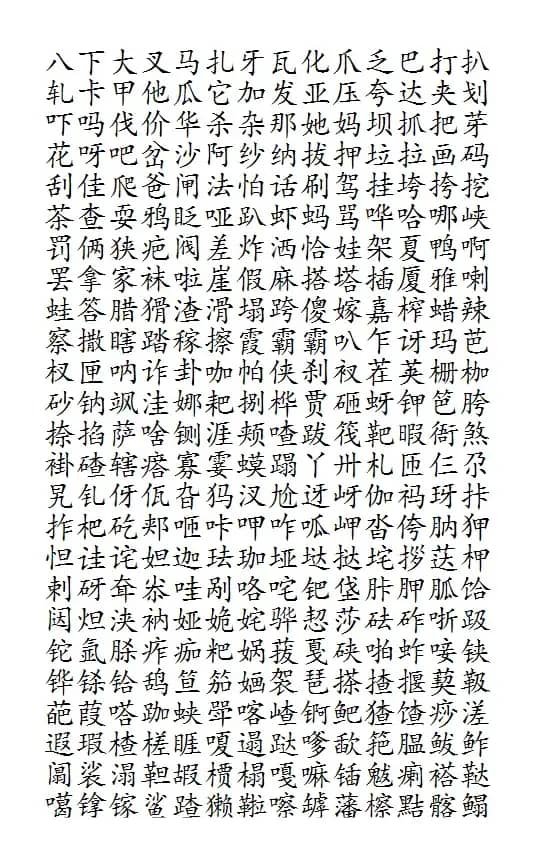 八下大叉马扎牙瓦化爪乏巴打扒
轧卡甲他瓜它加发亚压夸达夹划
吓吗伐价华杀杂那她妈坝抓把芽
花呀吧岔沙阿纱纳拔押垃拉画码
刮佳爬爸闸法怕话刷驾挂垮挎挖
茶查耍鸦眨哑趴虾蚂骂哗哈哪峡
罚俩狭疤阀差炸洒恰娃架夏鸭啊
罢拿家袜啦崖假麻搭塔插厦雅喇
蛙答腊猾渣滑塌跨傻嫁嘉榨蜡辣
察撒瞎踏稼擦霞霸霸叭乍讶玛芭
杈匣呐诈卦咖帕侠刹衩茬荚栅枷
砂钠飒洼娜耙捌桦贾砸蚜钾笆胯
捺掐萨啥铡涯颊喳跋筏靶暇衙煞
褂碴辖瘩寡霎蟆蹋丫卅札匝仨尕
旯钆伢佤旮犸汊尬迓岈伽祃玡挂
拃杷矻郏咂咔呷咋呱岬沓侉肭狎
怛诖诧妲迦珐珈垭垯挞垞拶荙柙
剌砑耷岽哇剐咯咤钯垡胩胛胍饸
闼炟浃衲娅姽姹骅恝莎砝砟哳趿
铊氩脎痄痂粑娲菝戛硖啪蚱唼铗
铧铩铪鸹笪笳婳袈琶搽揸揠葜靸
葩葭嗒跏蛱斝喀嵖锕鲃猹馇痧溠
遐瑕楂槎睚嗄遢跶嗲歃筢腽鲅鲊
阖裟溻靼嘏槚榻嘎嘛锸魃瘌褡鞑
噶䥽镓鲨蹅獭鞡嚓罅藩檫黠髂鳎